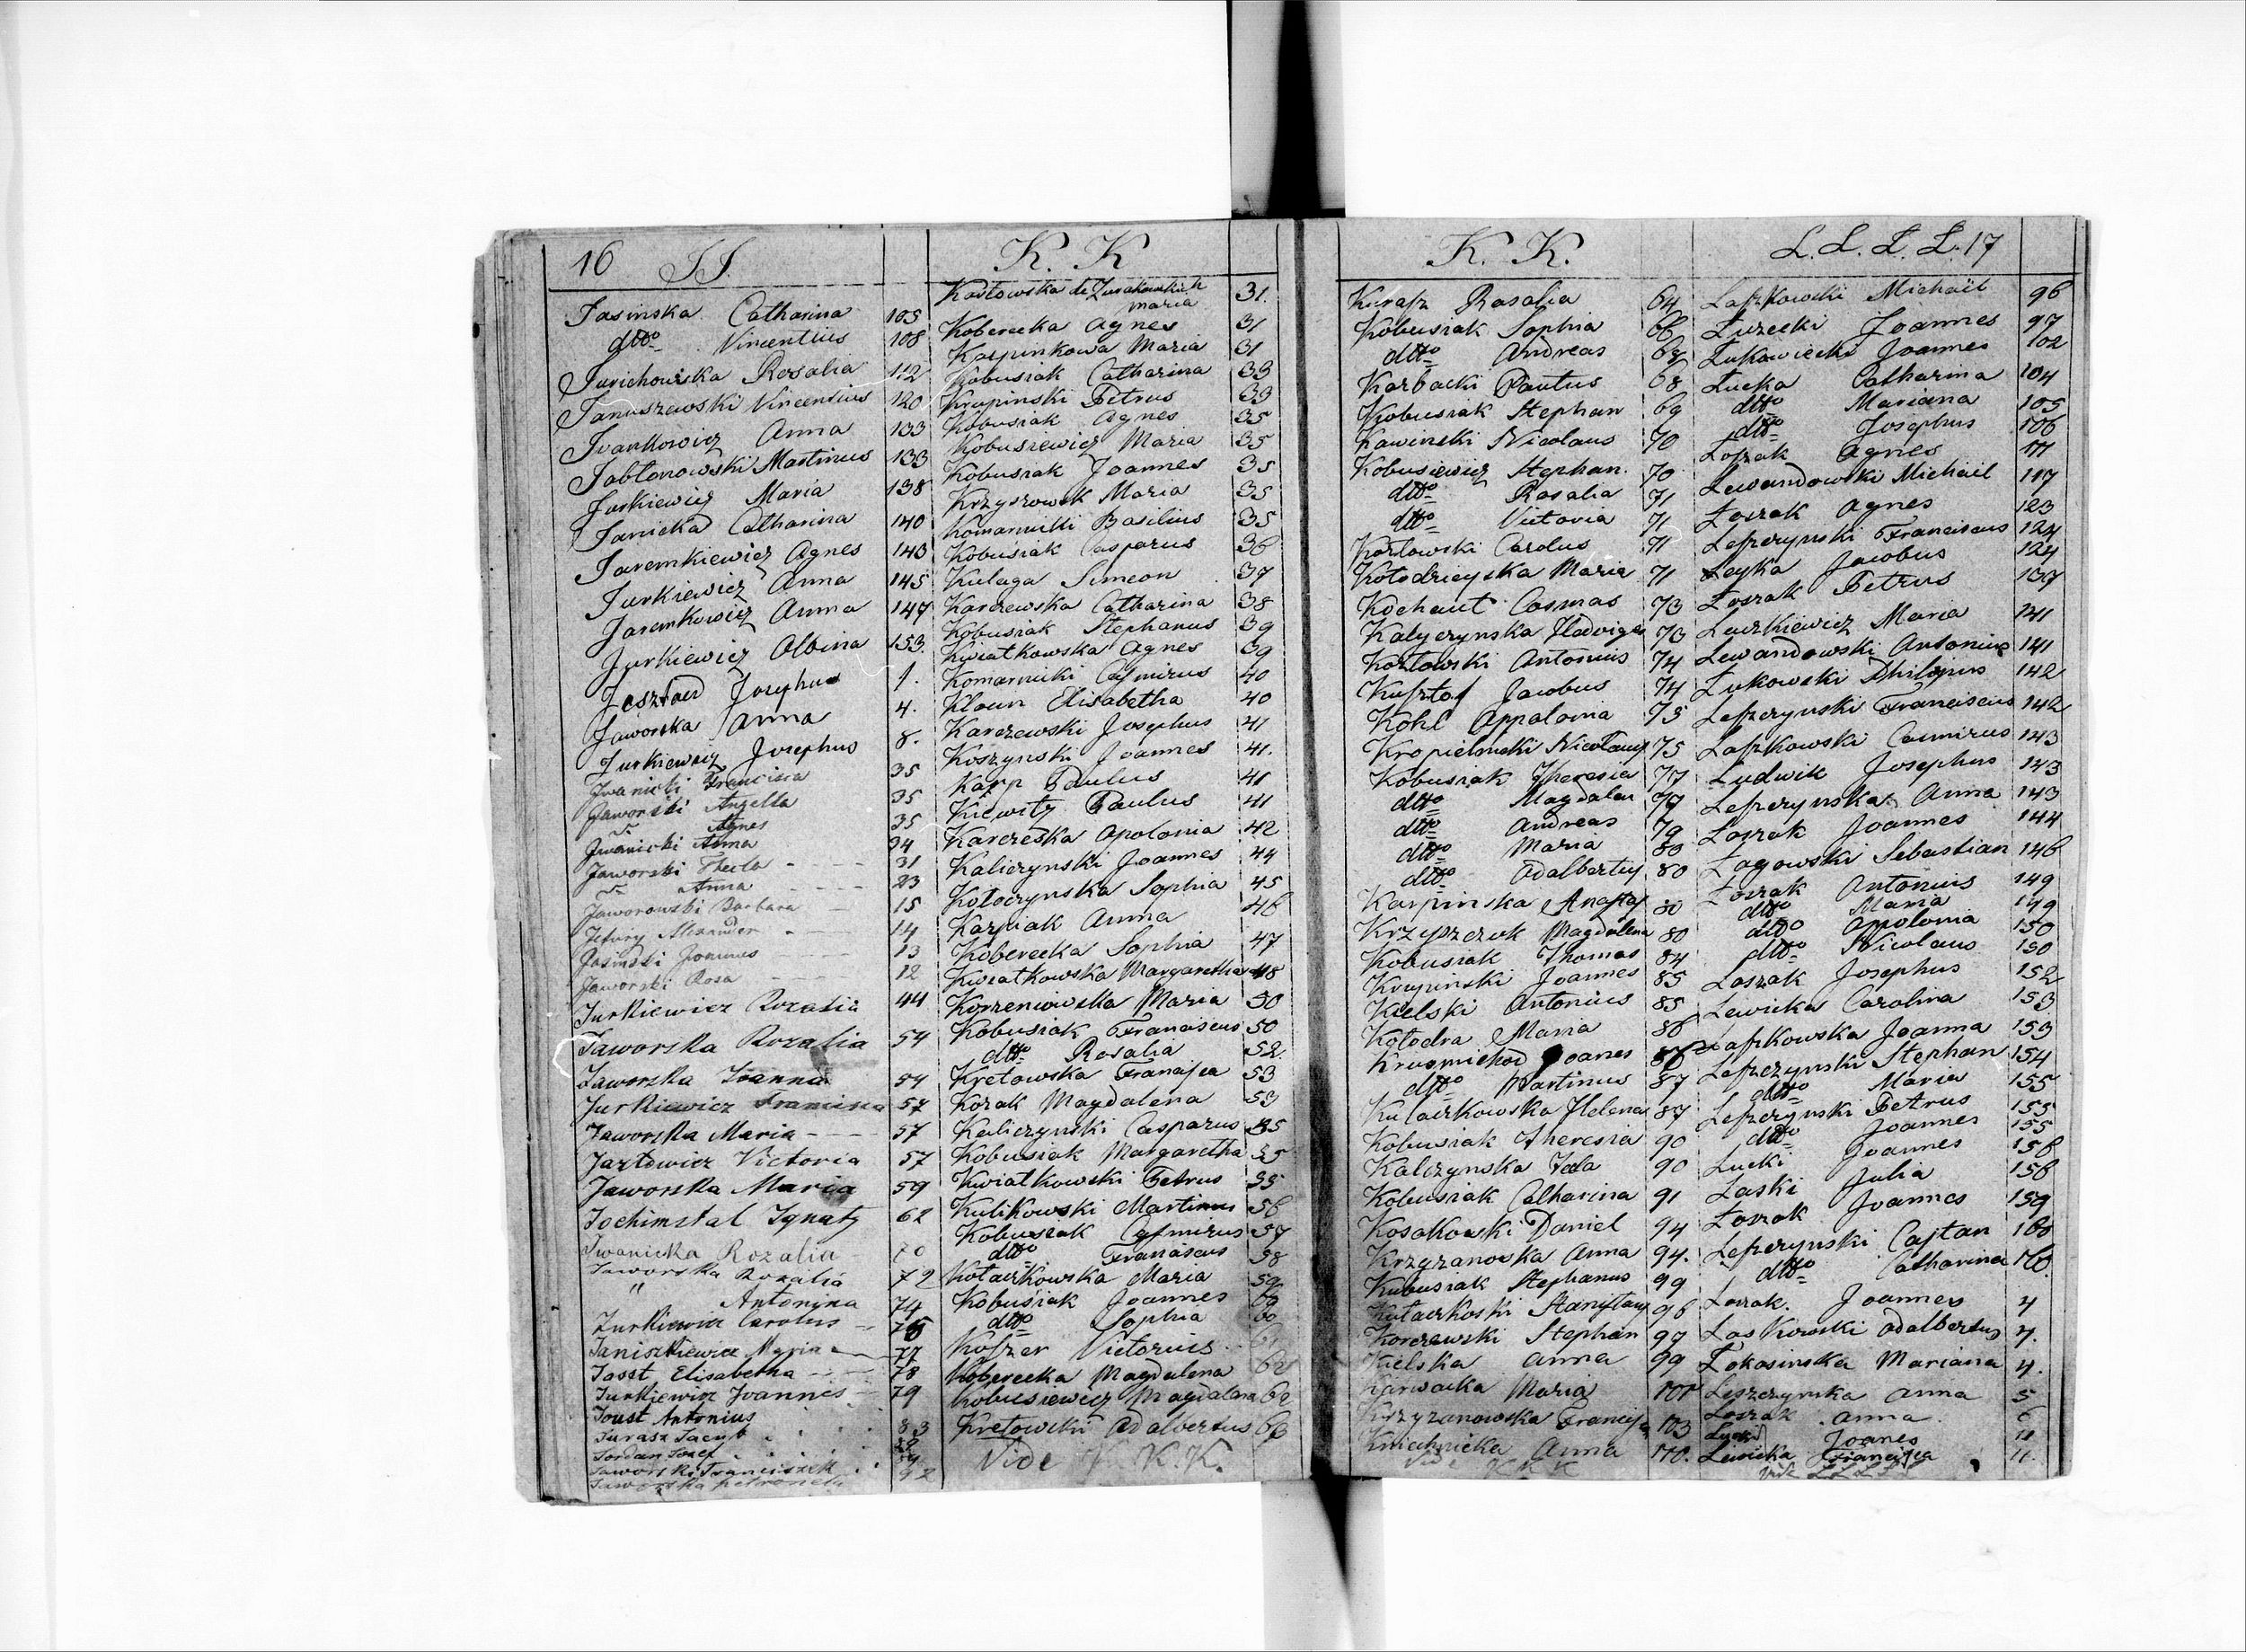 16 J J.
Jasinska Catharina 105
dtto Vincentius 108
Jurichowska Rosalia 112
Januszewski Vincentius 120
Ivankowicz Anna 133
Jabłonowski Martinus 133
Jurkiewicz Maria 138
Janicka Catharina 140
Jaremkiewicz Agnes 143
Jurkiewicz Anna 145
Jaremkowicz Anna 147
Jurkiewicz Albina 153.
Josephus 1.
Jaworska Anna 4.
Jurkiewicz Josephus 8.
Iwanicki Francisca 35
Jaworski Angella 35
Agnes 35
Iwanicki Anna 34
Jaworski Thecla 31
Anna 23
Jaworowski Barbara 15
Alexander 14
Jasinski Joannes 13
Jaworski Rosa 12
Jurkiewicz Rozalia 44
Jaworska Rozalia 54
Jaworska Joanna 54
Jurkiewicz Francisca 57
Jaworska Maria 57
Jazłowicz Victoria 57
Jaworska Maria 59
Jochimstal Ignatz 62
Iwanicka Rozalia 70
Jaworska Rozalia 72
" Antonina 74
Jurkiewicz Carolus 76
Janiszkiewicz Maria 77
Jasst Elisabetha 78
Jurkiewicz Joannes 79
Joust Antonius 83
Jurasz Jacub
Jordan Josef
Jaworski Franciszek 92
Jaworska Petronela
K. K
Kozłowska de Zurakowskich Maria 31.
Koberecka Agnes 31
Karpinkowa Maria 31
Kobusiak Catharina 33
Krupinski Petrus 33
Kobusiak Agnes 35
Kobusiewicz Maria 35
Kobusiak Joannes 35
Krzyszowsk Maria 35
Komarnicki Basilius 35
Kobusiak Casparus 36
Kulaga Simeon 37
Karczewska Catharina 38
Kobusiak Stephanus 39
Kwiatkowska Agnes 39
Komarnicki Casmirus 40
Klaun Elisabetha 40
Karczewski Josephus 41
Koszynski Joannes 41.
Karp Paulus 41
Paulus 41
Karczeska Apolonia 42
Kaliczynski Joannes 44
Kołoczynska Sophia 45
Karpiak Anna 46
Koberecka Sophia 47
Kwiatkowska Margaretha 48
Korzeniowska Maria 50
Kobusiak Franciscus 50
dtto Rosalia 52.
Kretowska Francisca 53
Kozak Magdalena 53
Kaliczynski Casparus 55
Kobusiak Margaretha 55
Kwiatkowski Petrus 55
Kulikowski Martinus 56
Kobusiak Casmirus 57
dtto Franciscus 58
Kołaczkowska Maria 59
Kobusiak Joannes 60
dtto Sophia 60
Kofzer Victorius 61
Koberecka Magdalena 62
Kobusiewicz Magdalena 62
Kretowicki Adalbertus 63
Vide K. K.
K. K.
Kurasz Rosalia 64
Kobusiak Sophia 66
dtto Andreas 68
Karbacki Paulus 68
Kobusiak Stephan 69
Kawinski Nicolaus 70
Kobusiewicz Stephan. 70
dtto Rosalia 71
dtto Victoria 71
Kozłowski Carolus 71
Kołodzieyska Maria 71
Kochaut Cosmas 73
Kalyczynska Hedviga 73
Kozłowski Antonius 74
Jacobus 74
Kohl Appalonia 75
Kropielnicki Nicolaus 75
Kobusiak Theresia 77
dtto Magdalen 77
dtto Andreas 79
dtto Maria 80
dtto Adalbertus 80
Karpinska 80
Krzyszczuk Magdalena 80
Kobusiak Thomas 84
Krupinski Joannes 85
Kielski Antonius 85
Kołodra Maria 86
Joanes 86
dtto Martinus 87
Kułaczkowska Helena 87
Kobusiak Theresia 90
Kalczynska Tecla 90
Kobusiak Catharina 91
Kosakowski Daniel 94
Krzyzanowska Anna 94.
Kubusiak Stephanus 99
Kołaczkoski Stanislaus 96
Korczewski Stephan 97
Kielska Anna 99
Karwacka Maria 101
Krzyzanowska Francisca 103
Anna 110.
Vide K K K
L. L. Ł. Ł. 17
Laszkowski Michaël 96
Łuzecki Joannes 97
Łukawiecki Joannes 102
Łucka Catharina 104
dtto Mariana 105
dtto Josephus 106
Łoszak Agnes 111
Lewandowski Michaël 117
Łoszak Agnes 123
Leszczynski Franciscus 124
Leyka Jacobus 124
Łoszak Petrus 137
Luczkiewicz Maria 141
Lewandowski Antonius 141
Łukowski Philipus 142
Leszczynski Franciscus 142
Laszkowski Casmirus 143
Ludwik Josephus 143
Leszczynska Anna 143
Łoszak Joannes 144
Łagowski Sebastian 146
Łoszak Antonius 149
dtto Maria 149
dtto Appolonia 150
dtto Nicolaus 150
Łoszak Josephus 152
Lewicka Carolina 153
Laszkowska Joanna 153
Leszczynski Stephan 154
dtto Maria 155
Leszczynski Petrus 155
dtto Joannes 155
Łucki Joannes 156
Łaski Julia 158
Łoszak Joannes 159
Leszczynski Cajtan 160
dtto Catharina 160.
Łoszak. Joannes 4
Laskowski Adalbertus 4.
Łokasinska Mariana 4.
Leszczynska Anna 5
Łoszak Anna 6
Łucki Joanes 11
Lewicka Francisca 11.
vide L L L L